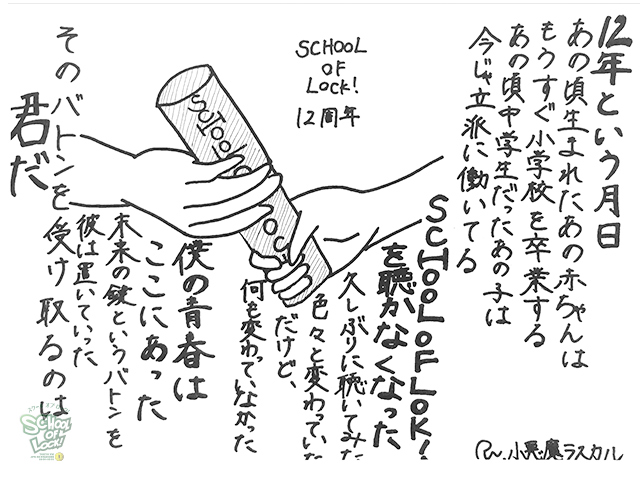 12年という月日
あの頃生まれたあの赤ちゃんは
もうすぐ小学校を卒業する
あの頃中学生だったあの子は
今じゃ立派に働いてる
SCHOOL
OF
LOCK!
12周年
SCHOOL OF LOK!
を聴かなくなった
久しぶりに聴いてみた
色々と変わっていた
だけど、
何も変わっていなかった
僕の青春は
ここにあった
未来の鍵というバトンを
彼は置いていった
そのバトンを受け取るのは
君だ
RN.小悪魔ラスカル
SCHOOL
OF
LOCK!